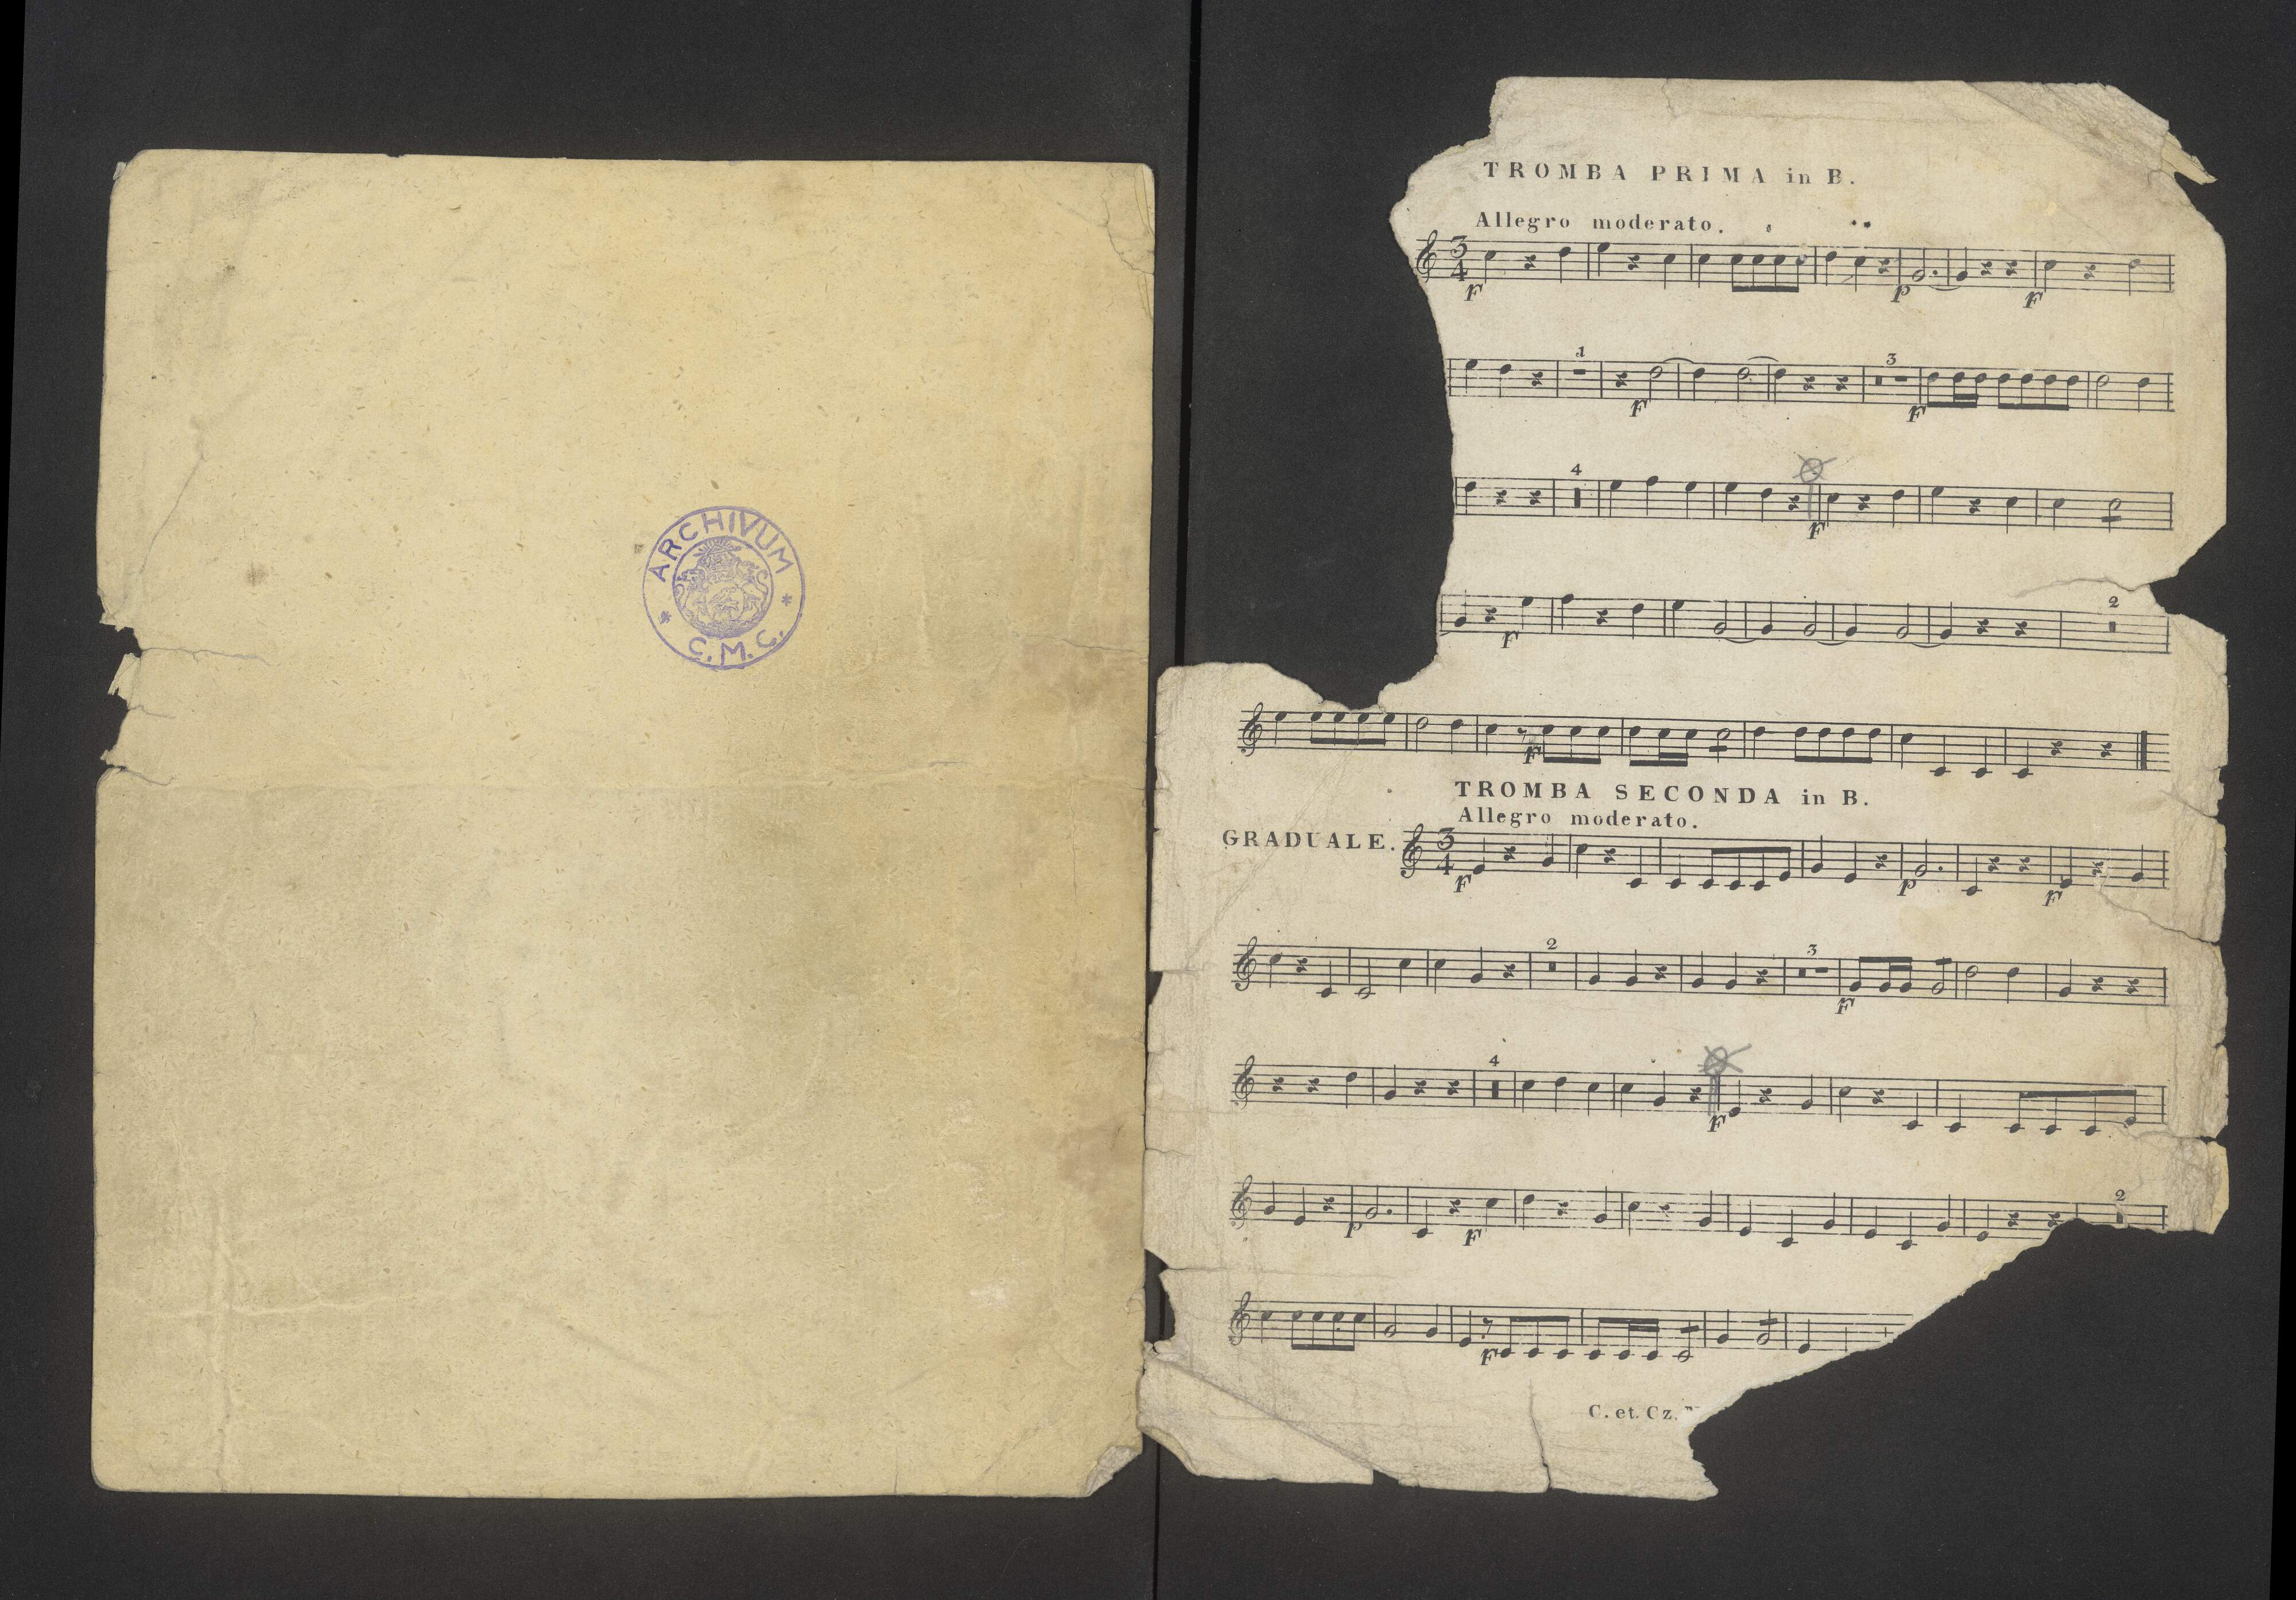 ARCHIVUM
* C.M.C. *
TROMBA PRIMA in B.
Allegro moderato.
3
4
F
P
F
1
F
3
F
4
F
F
2
F
TROMBA SECONDA in B.
Allegro moderato.
GRADUALE.
3
4
F
P
F
2
3
F
4
F
P
F
2
F
C. et. Cz.